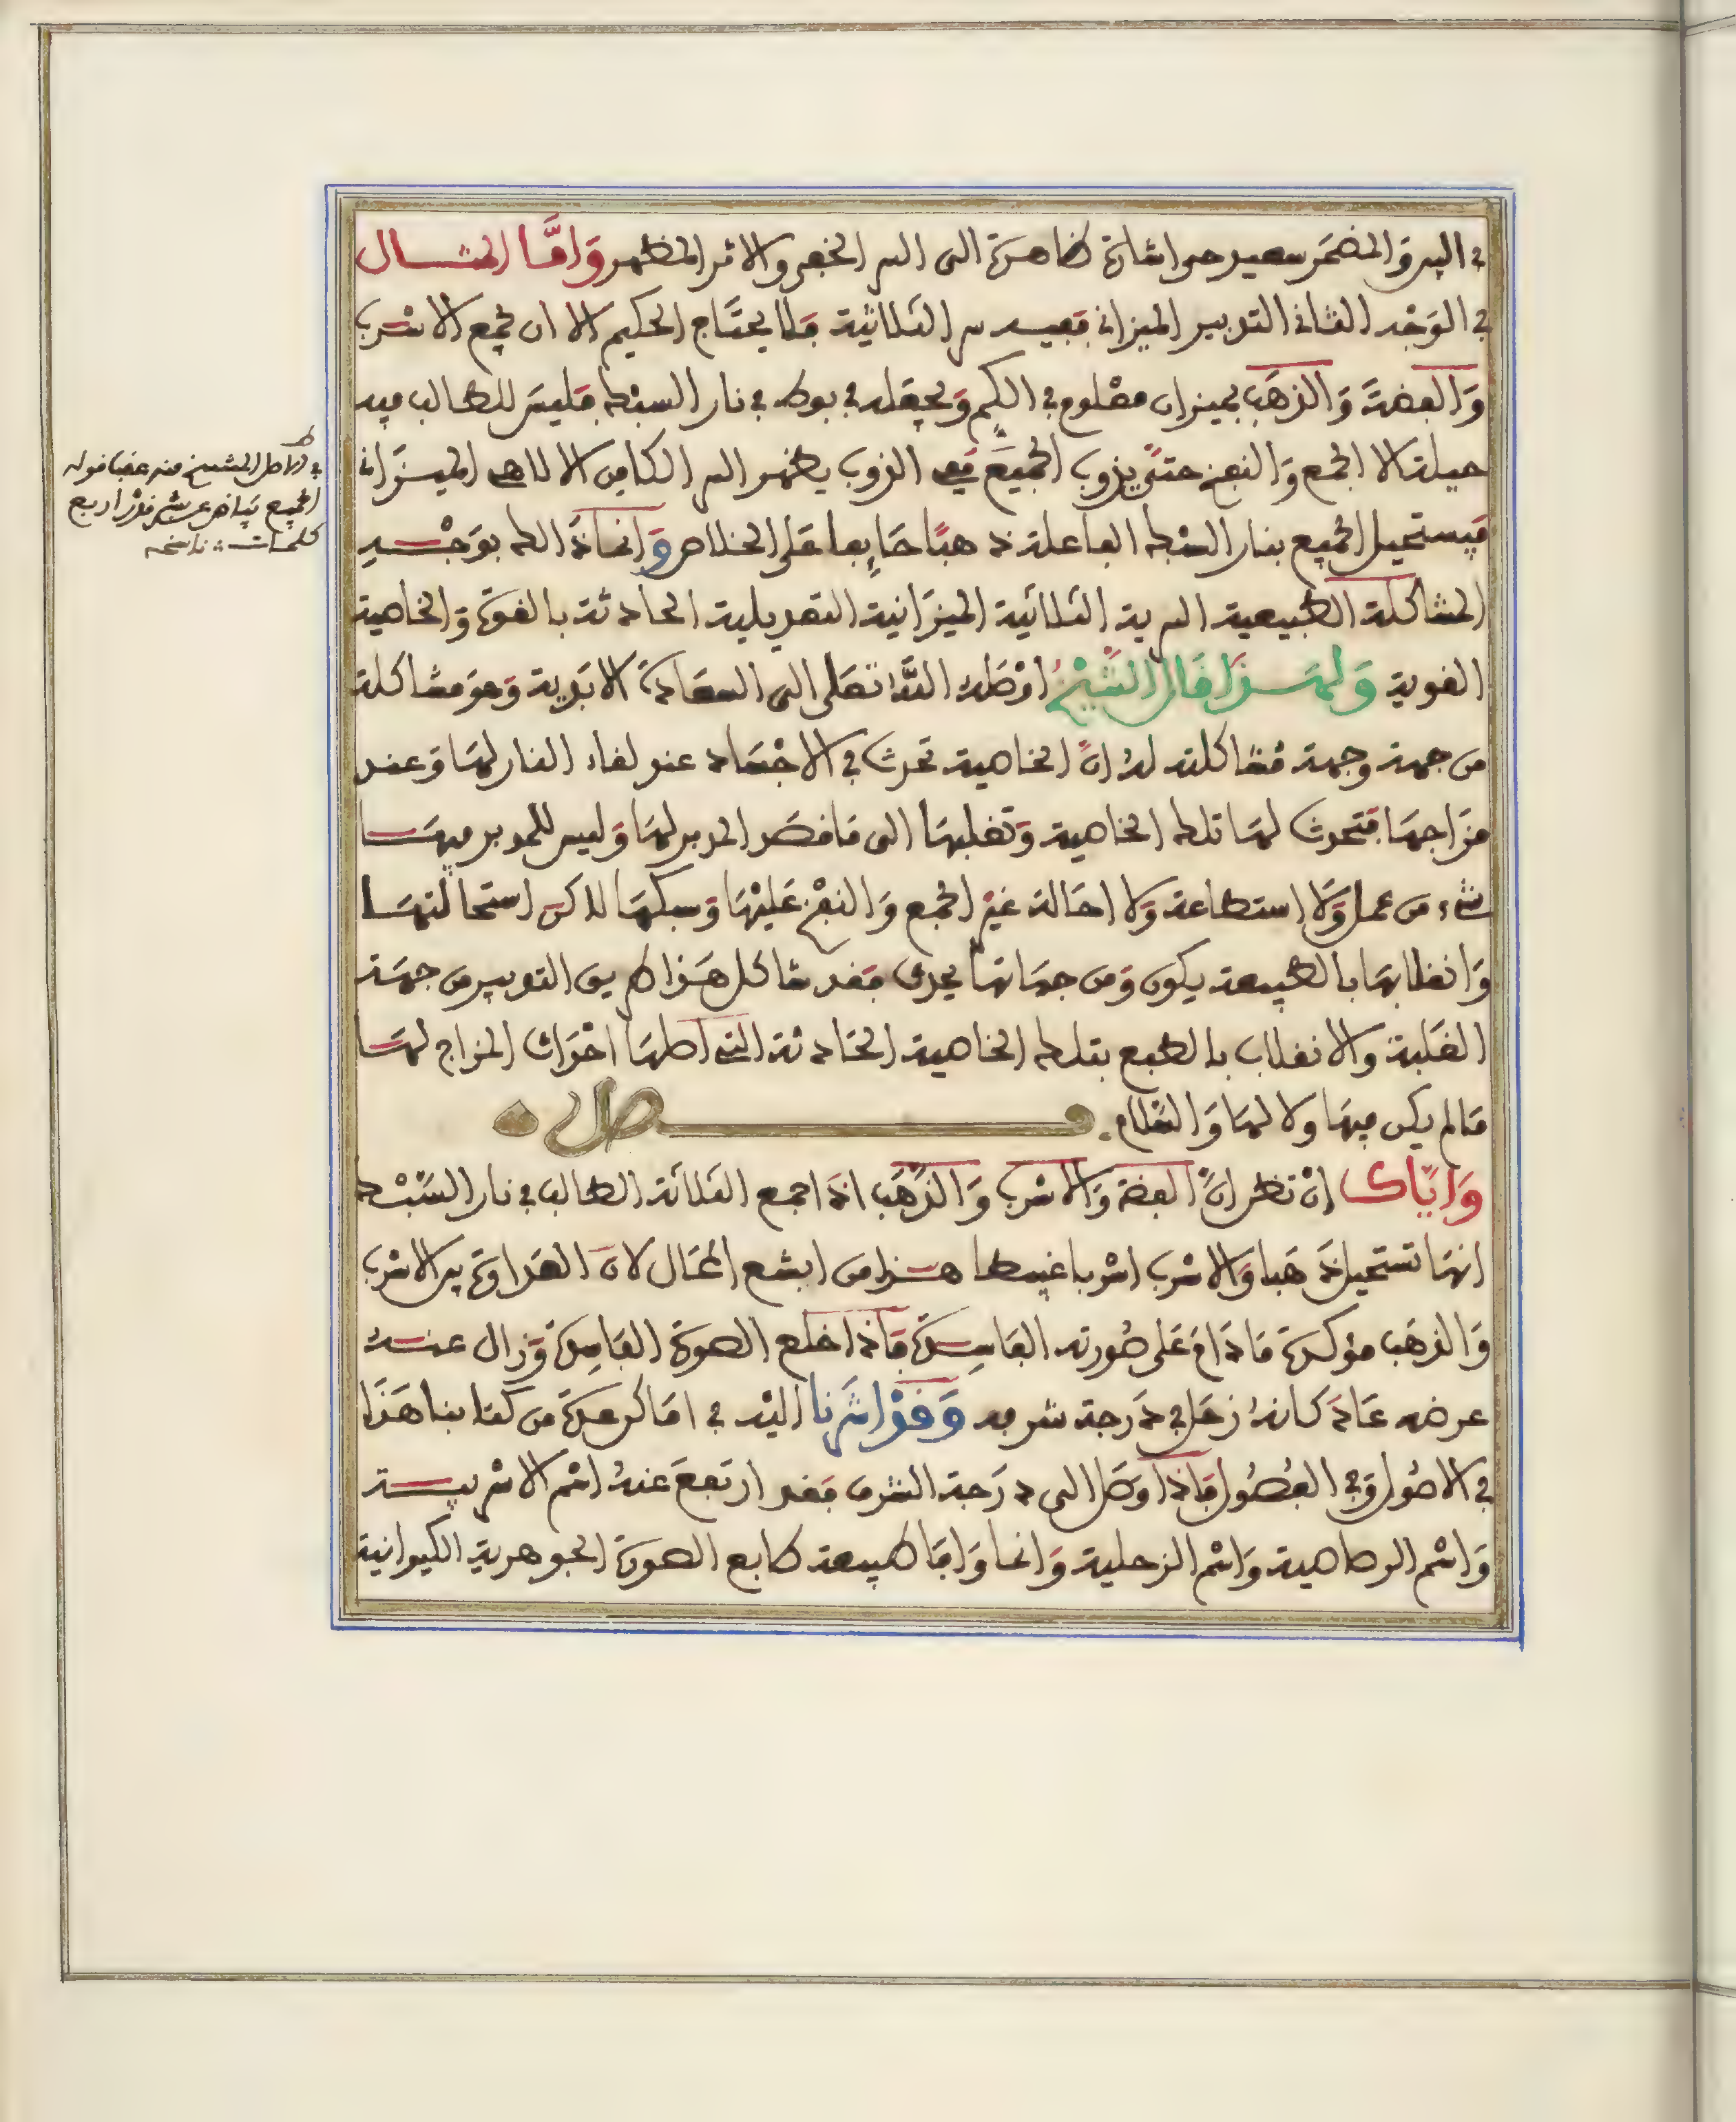 في السر والمضمر سعيد هو اشارة ظاهرة الى السر الخفي والاثر المظهر واما المثال
في الوجه الثاني التدبير الميزاني ففيه سر الثلاثية فلا يحتاج الحكيم الا ان يجمع الاسرب
والفضة والذهب بميزان معلوم في الكم ويجعله في بوط في نار السبك فليس للطالب فيه
حيلة الا الجمع والنفخ حتى يذوب الجميع ففي الذوب يظهر السر الكامن الالاهي الميزاني
فيستحيل الجميع بنار السبك الفاعلة ذهبا صابغا على الخلاص وانما ذالك بوجه
المشاكلة الطبيعية السرية الثلاثية الميزانية التعديلية الحادثة بالقوة والخاصية
القوية ولهذا قال الشيخ اوصله الله تعلى الى السعادة الابدية وهو مشاكلة
من جهة وجهة مشاكلته له ان الخاصية تحدث في الاجساد عند لقاء النار لها وعند
مزاجها فتحدث لها تلك الخاصية وتقلبها الى ما قصد المدبر لها وليس للمدبر فيها
شيء من عمل ولا استطاعة ولا احالة غير الجمع والنفخ عليها وسبكها لاكن استحالتها
وانقلابها بالطبيعة يكون ومن جهاتها يجري فقد شاكل هذا طريق التدبير من جهة
الغلبة والانقلاب بالطبع بتلك الخاصية الحادثة التي اصلها احداث المزاج لها
ما لم يكن فيها ولا لها والسلام. فصل
واياك ان تظن ان الفضة والاسرب والذهب اذا جمع الثلاثة الطالب في نار السبك
انها تستحيل ذهبا والاسرب اسربا غبيطا هذا من ابشع المحال لان العداوة بين الاسرب
والذهب مؤكدة ما دام على صورته الفاسدة فاذا خلع الصورة الفاسدة وزال عنه
عرضه عاد كانه زحل في درجة شرفه وقد اشرنا اليه في اماكن عدة من كتابنا هذا
في الاصول وفي الفصول فاذا وصل الى درجة الشرف فقد ارتفع عنه اسم الاسربية
واسم الرصاصية واسم الزحلية وانما واما طبيعة طابع الصورة الجوهرية الكيوانية
في اصل الشيخ منه عقبا قوله
الجميع بياض عشر قدر اربع
كلمات ناسخه